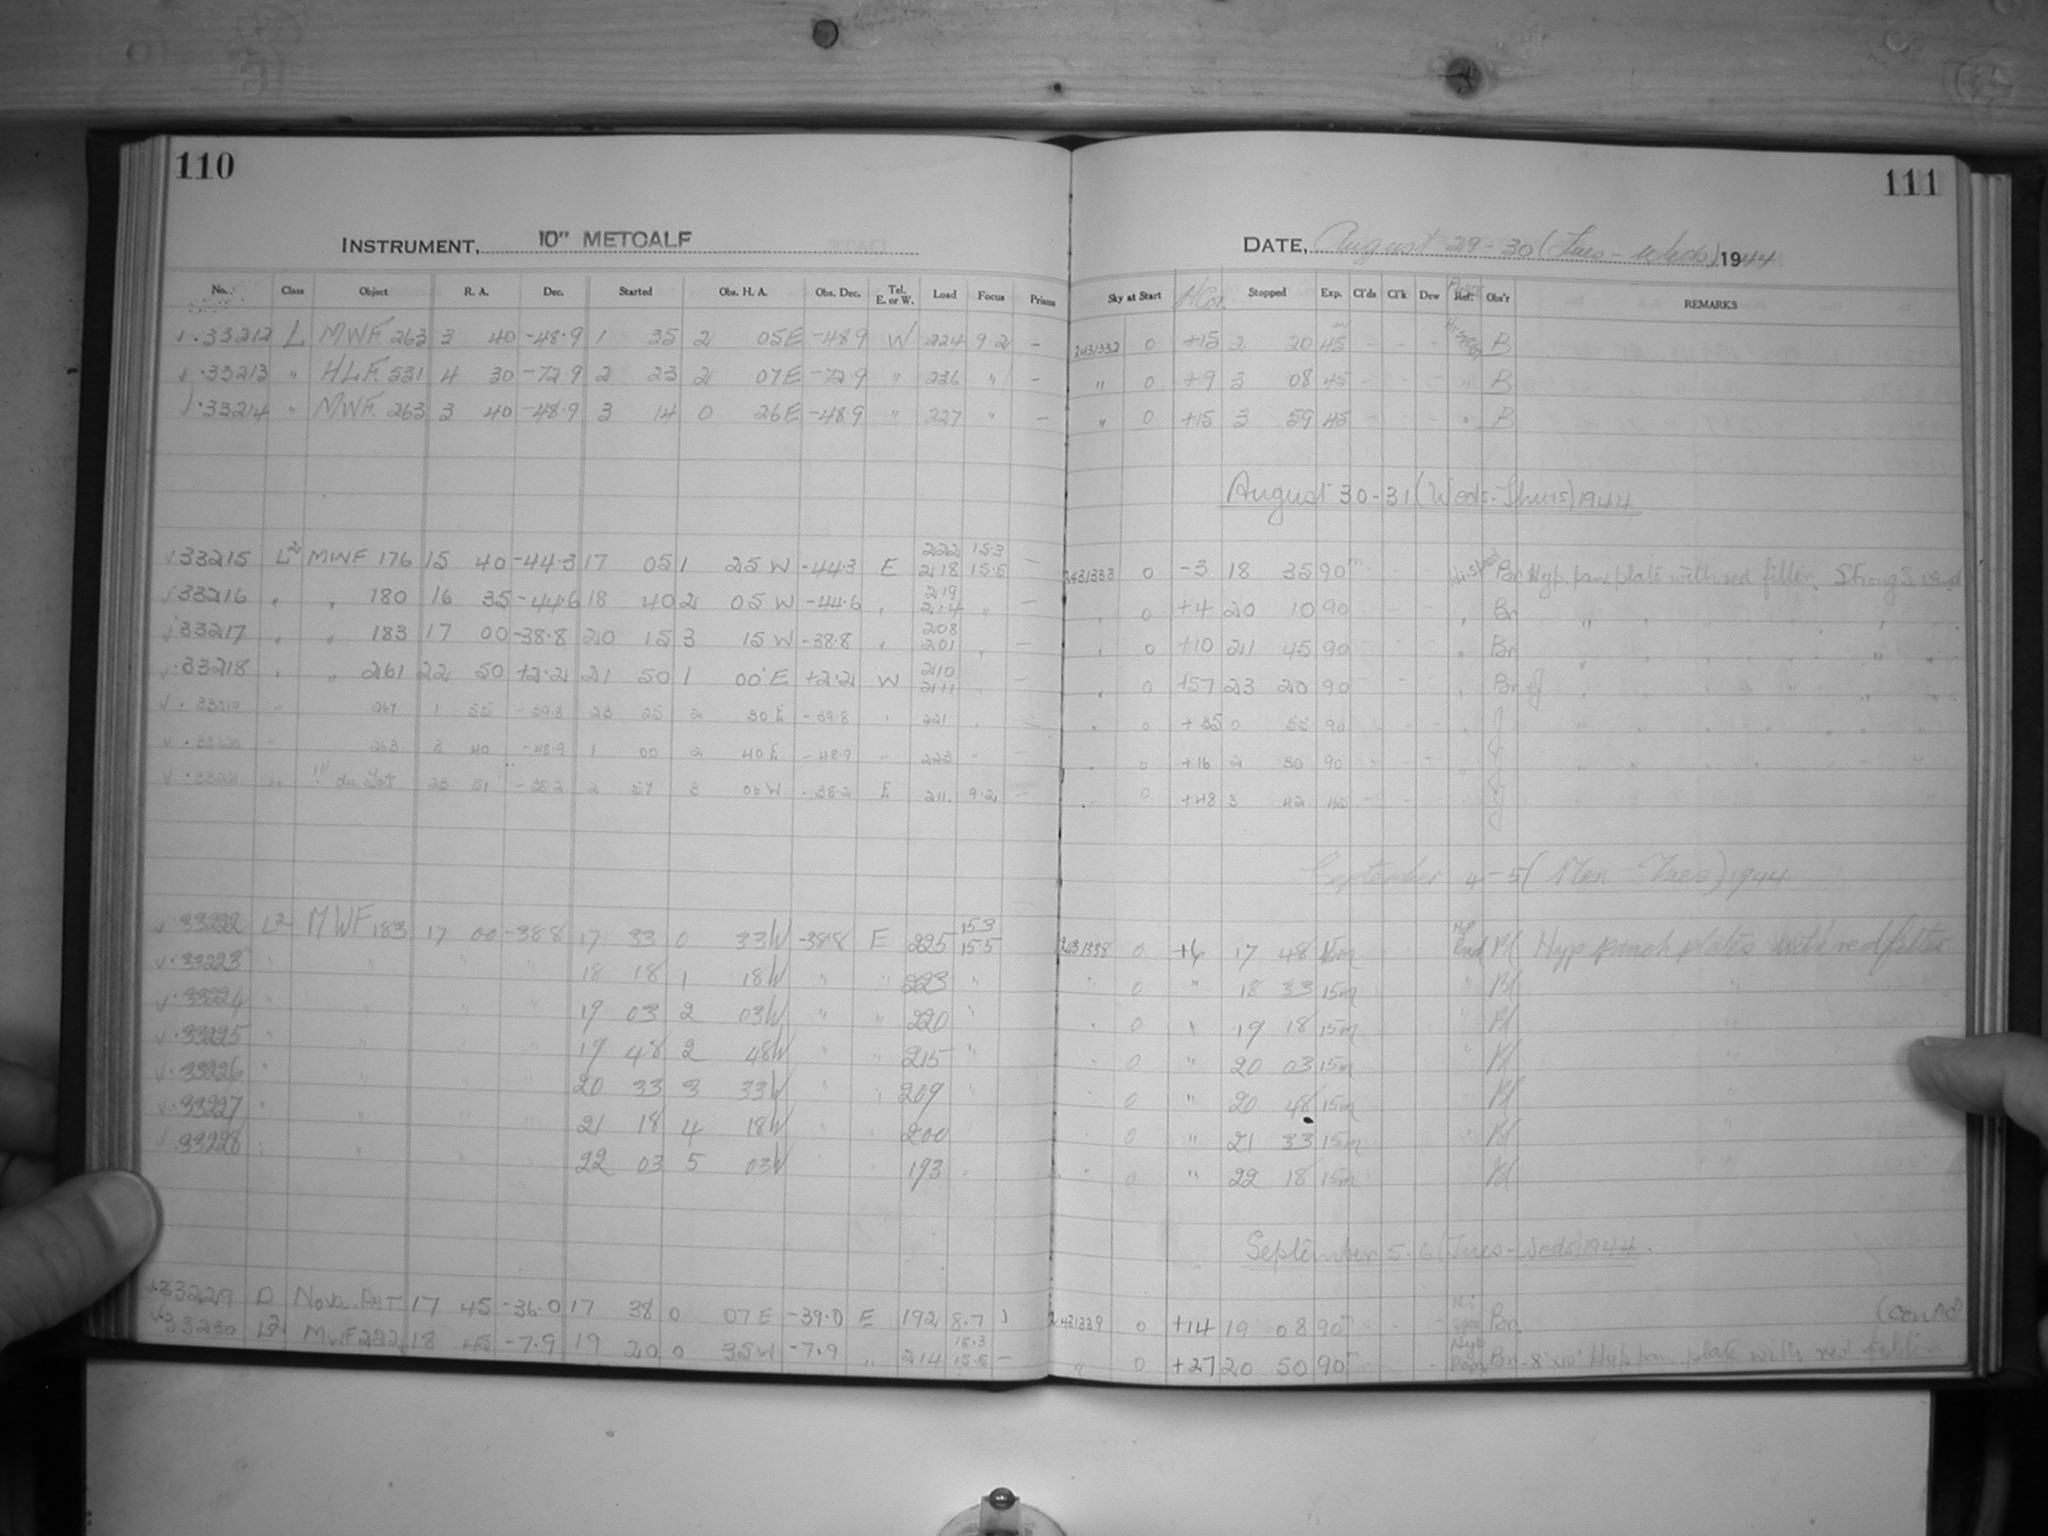 110
111
INSTRUMENT, 10" METCALF
DATE, August 29-30 (Tues - Weds) 1944
No. Class Object R. A. Dec. Started Obs. H. A. Obs. Dec. Tel. E. or W. Load Focus Prisms Sky at Start Stopped Exp. Cl'ds Cl'k Dew Ref. Obs'r REMARKS
33212 L MWF. 263 3 40 -48.9 1 35 2 05E -48.9 W 224 9.2 - 2431332 0 +15 2 20 45 - - - B
33213 " HLF. 531 4 30 -72.9 2 23 2 07E -72.9 " 236 " - " 0 +9 3 08 45 - - - B
33214 " MWF. 263 3 40 -48.9 3 14 0 26E -48.9 " 227 " - " 0 +15 3 59 45 - - - " B
August 30-31 (Weds-Thurs) 1944
33215 L2 MWF 176 15 40 -44.3 17 05 1 25 W -44.3 E 222 218 15.3 15.5 - 2431333 0 -3 18 35 90m - - - Br Hyp. pan plate with red filter. Strong S wind
33216 " " 180 16 35 -44.6 18 40 2 05 W -44.6 " 219 214 " - " 0 +4 20 10 90 - - - " Br " " " "
33217 " " 183 17 00 -38.8 20 15 3 15 W -38.8 " 208 201 " - " 0 +10 21 45 90 - - - " Br " " " "
33218 " " 261 22 50 +2.2 21 50 1 00 E +2.2 W 210 211 " - " 0 +57 23 20 90 - - - " Br + J " " " "
33219 " 267 1 55 -39.8 23 25 2 30 E -39.8 " 221 " - " 0 +35 0 55 90 - - - " J " " " "
33220 " 263 3 40 -48.9 1 00 2 40 E -48.9 " 223 " - " 0 +16 2 30 90 - - - J " " " "
33221 23 51 -38.2 2 57 3 06 W -38.2 E 211 9.2 - " 0 +48 3 42 45 - - - J
September 4-5 (Mon - Tues) 1944
33222 L2 MWF 183 17 00 -38.8 17 33 0 33W -38.8 E 225 15.3 15.5 2431338 0 +6 17 48 15m Bl Hyp panch plates with red filter
33223 " " " " 18 18 1 18W " " 223 " " 0 " 18 33 15m " Bl "
33224 " " " " 19 03 2 03W " " 220 " " 0 " 19 18 15m " Bl "
33225 " " " " 19 48 2 48W " " 215 " " 0 " 20 03 15m " Bl "
33226 " " " " 20 33 3 33W " " 209 " " 0 " 20 48 15m Bl "
33227 " " " " 21 18 4 18W " " 200 " 0 " 21 33 15m " Bl "
33228 " " 22 03 5 03W " " 193 " " 0 " 22 18 15m Bl "
September 5-6 (Tues-Weds) 1944.
33229 D Nova 17 45 -36.0 17 38 0 07 E -39.0 E 192 8.7 2431339 0 +14 19 08 90m - - - Br (contd)
33230 L2 MWF 222 18 45 -7.9 19 20 0 35W -7.9 " 214 15.3 15.5 - " 0 +27 20 50 90m - Hyp Pan Br. 8" x10" Hyp pan plate with red filter